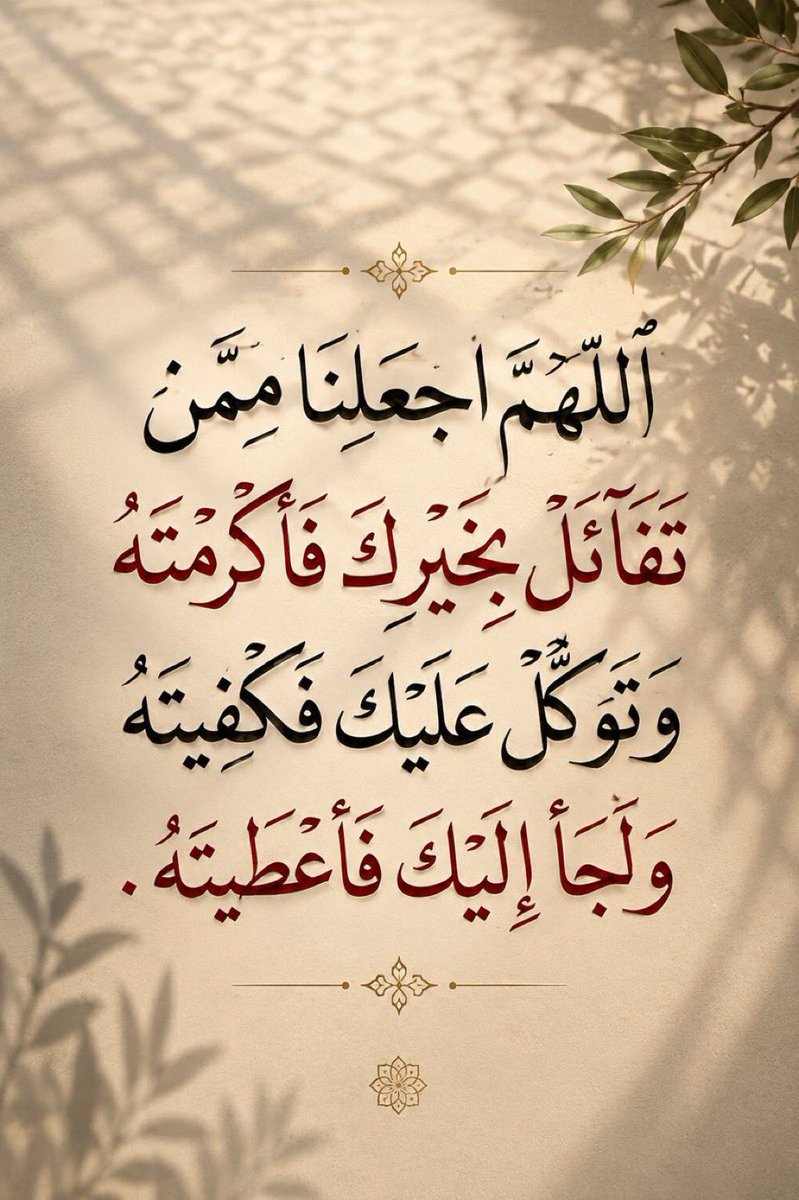 ٱللّٰهُمَّ اجعَلِنَا مِمَّن
تَفَآئَلْ بِخَيْرِكَ فَأَكْرْمْتَهُ
وَتَوَكَّلْ عَلَيْكَ فَكْفِيتَهُ
وَلَجَأ إِلَيْكَ فَأَعْطَيتَهُ .